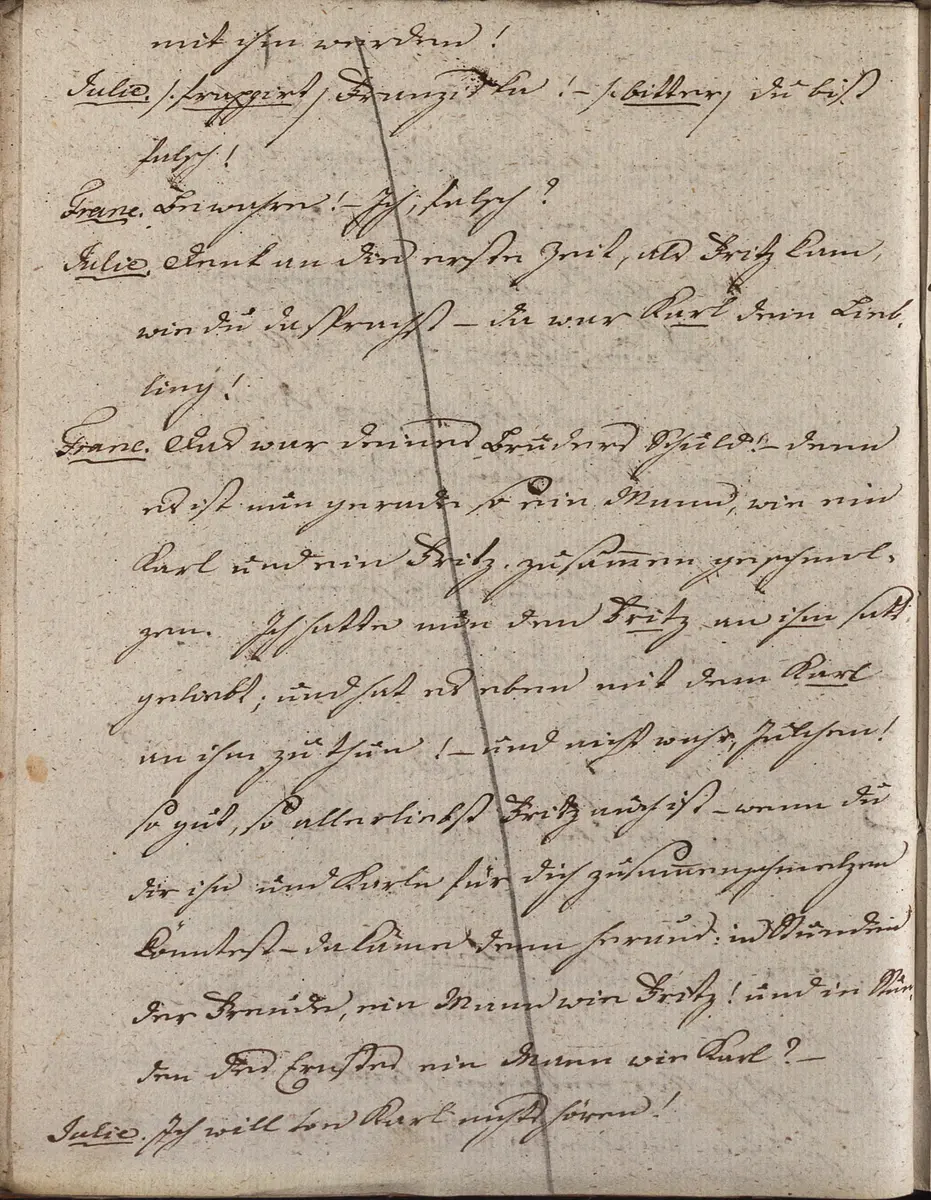 mit ihm werden!
Julie. /: frappirt / Franziska! – /: bitter / du bist
falsch!
Franc. Bewahre! – Ich, falsch?
Julie. Denk an die erste Zeit, als Fritz kam,
wie du da sprachst – da war Karl dein Lieb-
ling!
Franc. Das war deines Bruders Schuld! – denn
er ist nun gerade so ein Mann, wie ein
Karl und ein Fritz zusammen geschmol-
zen. Ich hatte nun den Fritz an ihm satt
geliebt; und hat es eben mit dem Karl
an ihm zu thun! – und nicht wahr, Julchen!
so gut, so allerliebst Fritz auch ist – wenn du
dir ihn und Karln für dich zusammenschmelzen
könntest – da käme denn heraus: in Stunden
der Freude, ein Mann wie Fritz! und in Stun-
den des Ernstes ein Mann wie Karl? –
Julie. Ich will von Karl nichts hören!